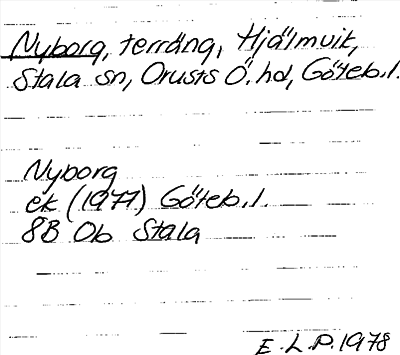 Nyborg, terräng, Hjälmvik,
Stala sn, Orusts Ö. hd, Göteb. l.
Nyborg
ek (1977) Göteb. l.
8B 0b Stala
E.L.P. 1978